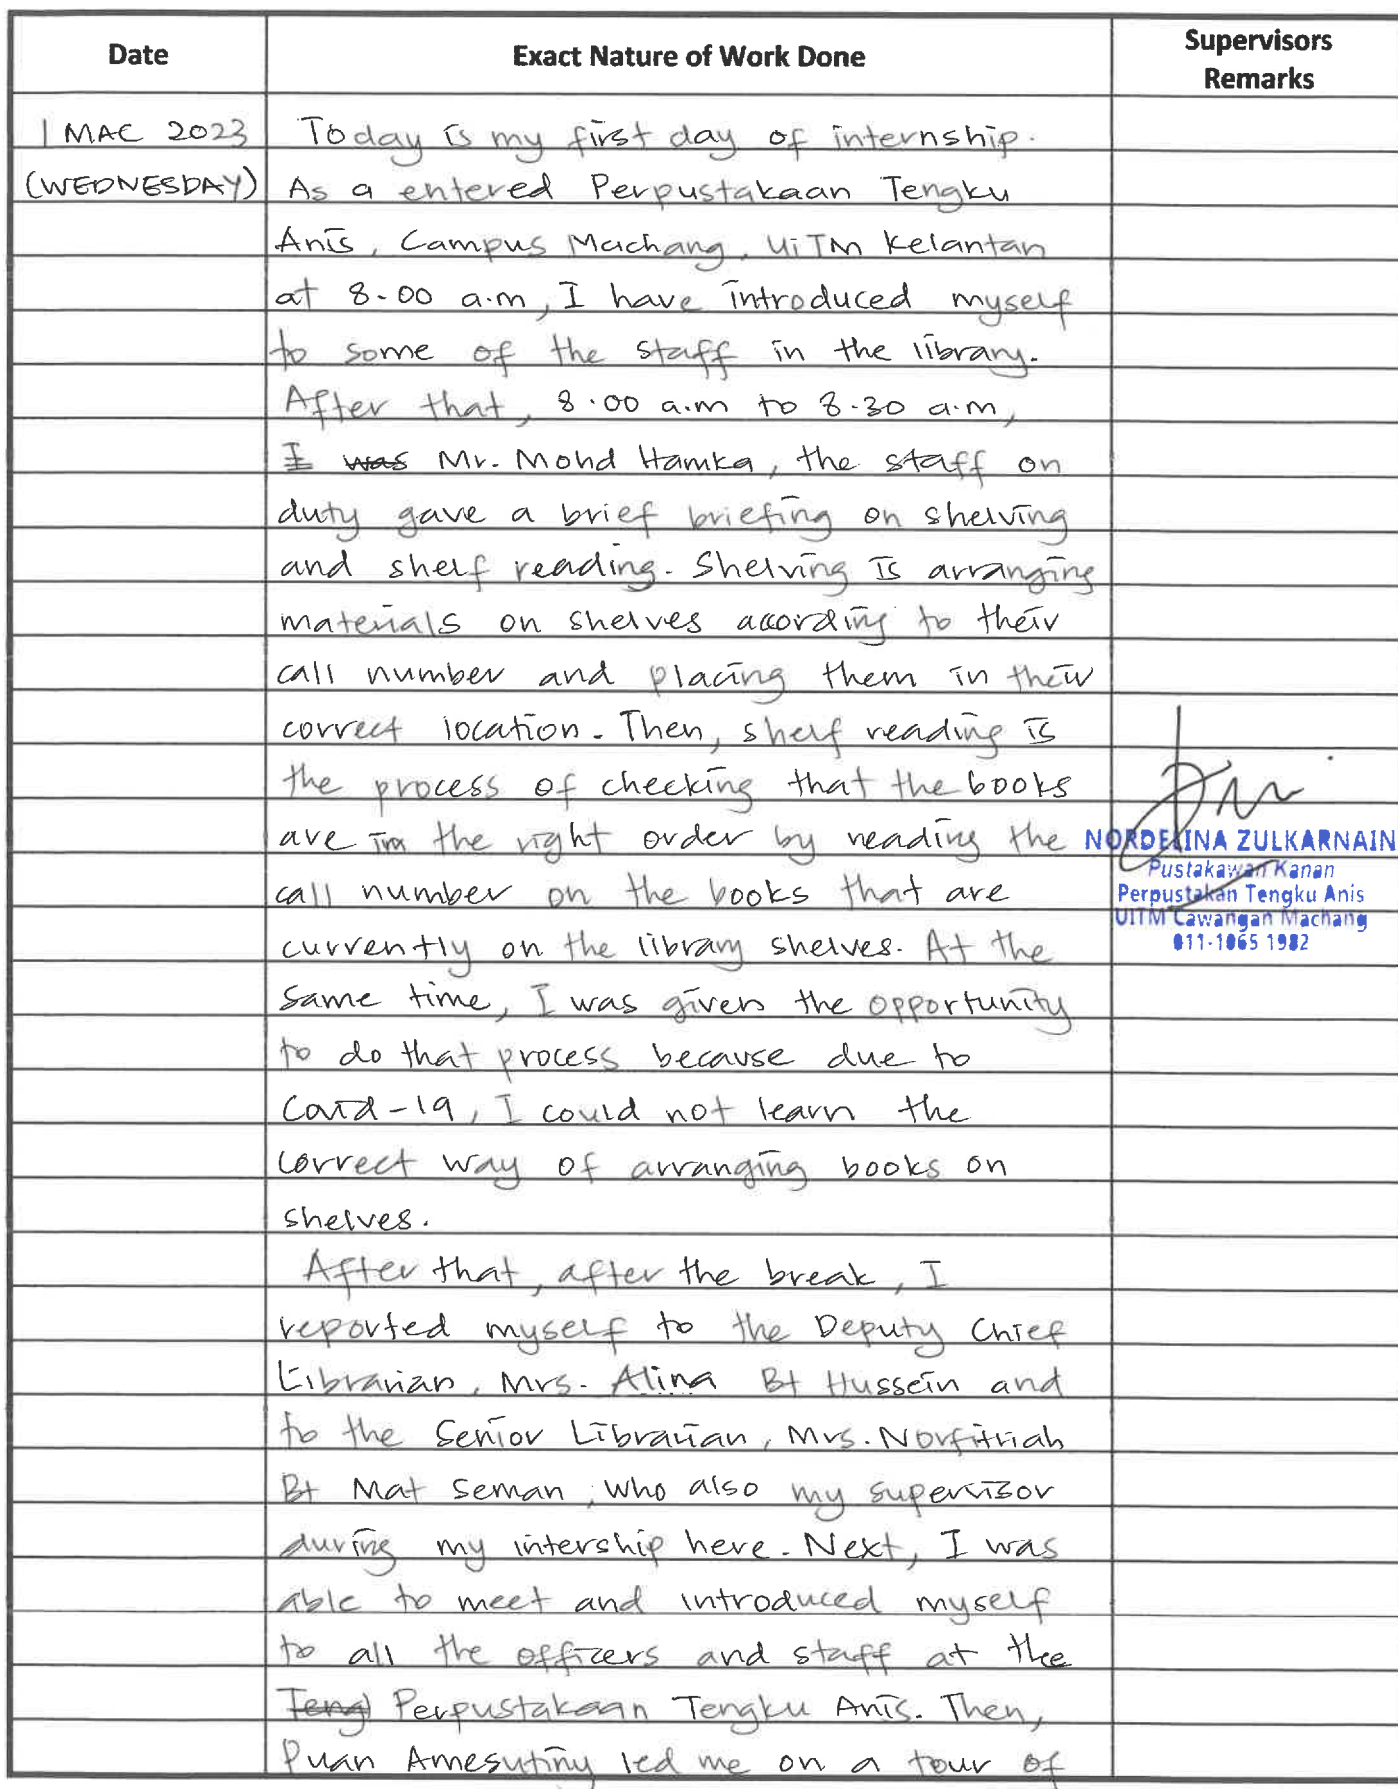 Date
Exact Nature of Work Done
Supervisors
Remarks
1 MAC 2023
(WEDNESDAY)
Today is my first day of internship.
As a entered Perpustakaan Tengku
Anis, Campus Machang, UiTM Kelantan
at 8.00 a.m, I have introduced myself
to some of the staff in the library.
After that, 8.00 a.m to 8.30 a.m,
I was Mr. Mohd Hamka, the staff on
duty gave a brief briefing on shelving
and shelf reading. Shelving is arranging
materials on shelves according to their
call number and placing them in their
correct location. Then, shelf reading is
the process of checking that the books
are in the right order by reading the
call number on the books that are
currently on the library shelves. At the
same time, I was given the opportunity
to do that process because due to
Covid-19, I could not learn the
correct way of arranging books on
shelves.
After that, after the break, I
reported myself to the Deputy Chief
Librarian, Mrs. Alina Bt Hussein and
to the Senior Librarian, Mrs. Norfitriah
Bt Mat Seman, who also my supervisor
during my intership here. Next, I was
able to meet and introduced myself
to all the officers and staff at the
Teng Perpustakaan Tengku Anis. Then,
Puan Amesutiny led me on a tour of
NORDELINA ZULKARNAIN
Pustakawan Kanan
Perpustakan Tengku Anis
UITM Cawangan Machang
011-1065 1982